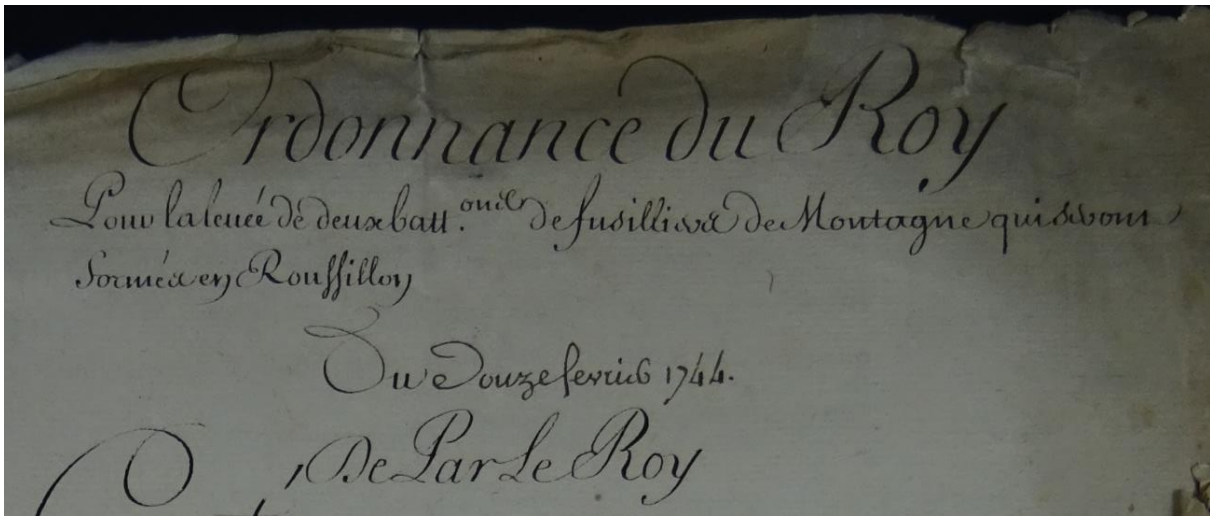 Ordonnance du Roy
Pour la levée de deux batt.onˢ de fusilliers de Montagne qui seront
formés en Roussillon
Du Douze fevrier 1744.
De Par Le Roy